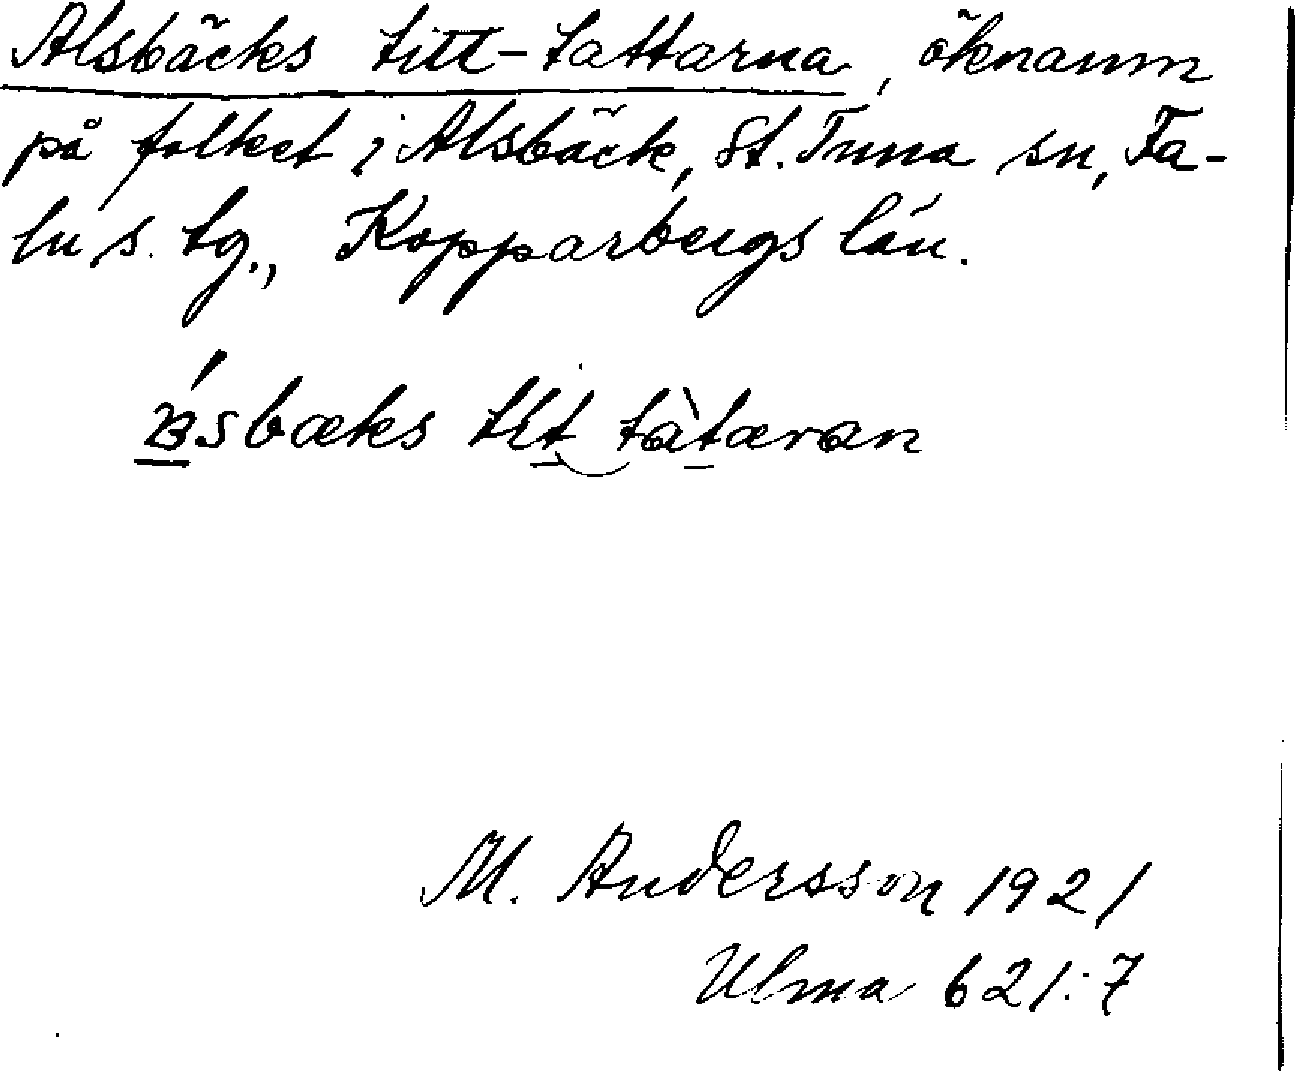 Alsbäcks titt-tattarna, öknamn
på folket i Alsbäck, St. Tuna sn, Fa-
lu s. tg., Kopparbergs län.
tàtaran
M. Andersson 1921
Ulma 621:7